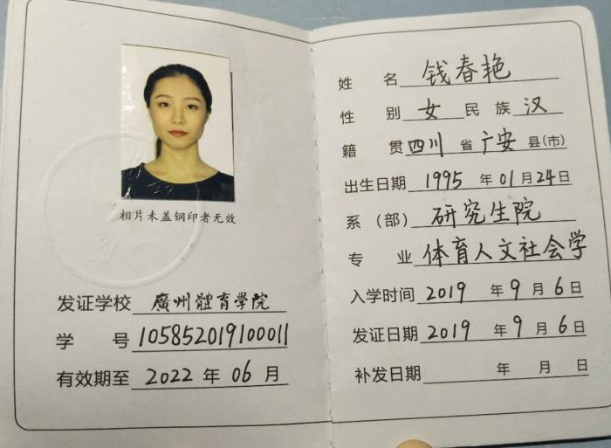 相片未盖钢印者无效
发证学校 廣州體育学院
学 号 105852019100011
有效期至 2022 年 06 月
姓 名 钱春艳
性 别 女 民 族 汉
籍 贯 四川 省 广安 县(市)
出生日期 1995 年 01 月 24 日
系（部）研究生院
专 业 体育人文社会学
入学时间 2019 年 9 月 6 日
发证日期 2019 年 9 月 6 日
补发日期 年 月 日